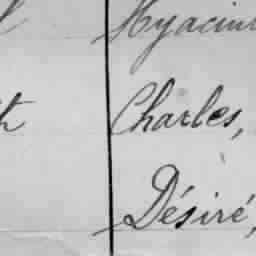 Hyacin
Charles,
Désiré,